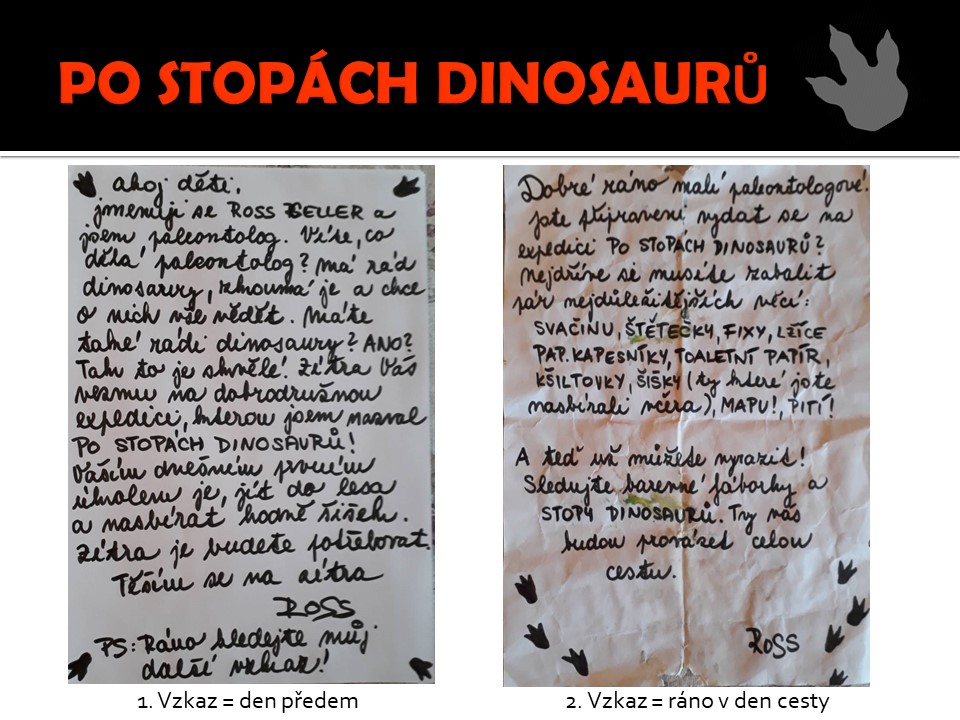 PO STOPÁCH DINOSAURŮ
ahoj děti,
jmenuji se ROSS GELLER a
jsem paleontolog. Víte, co
dělá paleontolog? Má rád
dinosaury, zkoumá je a chce
o nich vše vědět. Máte
také rádi dinosaury? ANO?
Tak to je skvělé! Zítra Vás
vezmu na dobrodružnou
expedici, kterou jsem nazval
PO STOPÁCH DINOSAURŮ!
Vaším dnešním prvním
úkolem je, jít do lesa
a nasbírat hodně šišek.
Zítra je budete potřebovat!
Těším se na zítra
ROSS
PS: Ráno hledejte můj
další vzkaz!
1. Vzkaz = den předem
Dobré ráno malí paleontologové!
jste připraveni vydat se na
expedici PO STOPÁCH DINOSAURŮ?
nejdříve si musíte zabalit
pár nejdůležitějších věcí:
SVAČINU, ŠTĚTEČKY, FIXY, LŽÍCE
PAP. KAPESNÍKY, TOALETNÍ PAPÍR,
KŠILTOVKY, ŠIŠKY (ty které jste
nasbírali včera), MAPU!, PITÍ!
A teď už můžete vyrazit!
Sledujte barevné fáborky a
STOPY DINOSAURŮ. Ty vás
budou provázet celou
cestu.
ROSS
2. Vzkaz = ráno v den cesty